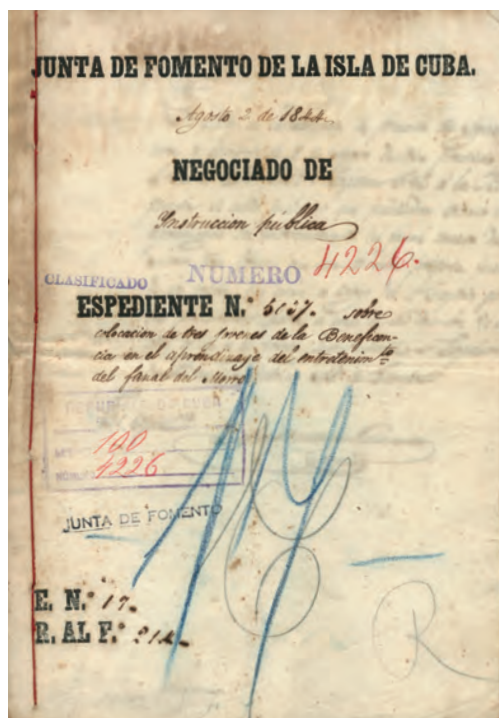 JUNTA DE FOMENTO DE LA ISLA DE CUBA.
Agosto 2 de 1844.
NEGOCIADO DE
Instruccion pública
4226.
CLASIFICADO NUMERO
ESPEDIENTE N.º sobre
colocacion de tres jovenes de la Beneficen-
cia en el aprendizaje del entretenim.to
del fanal del Morro
100
4226
JUNTA DE FOMENTO
E. N.º 17.
R. AL F.º 214.
R